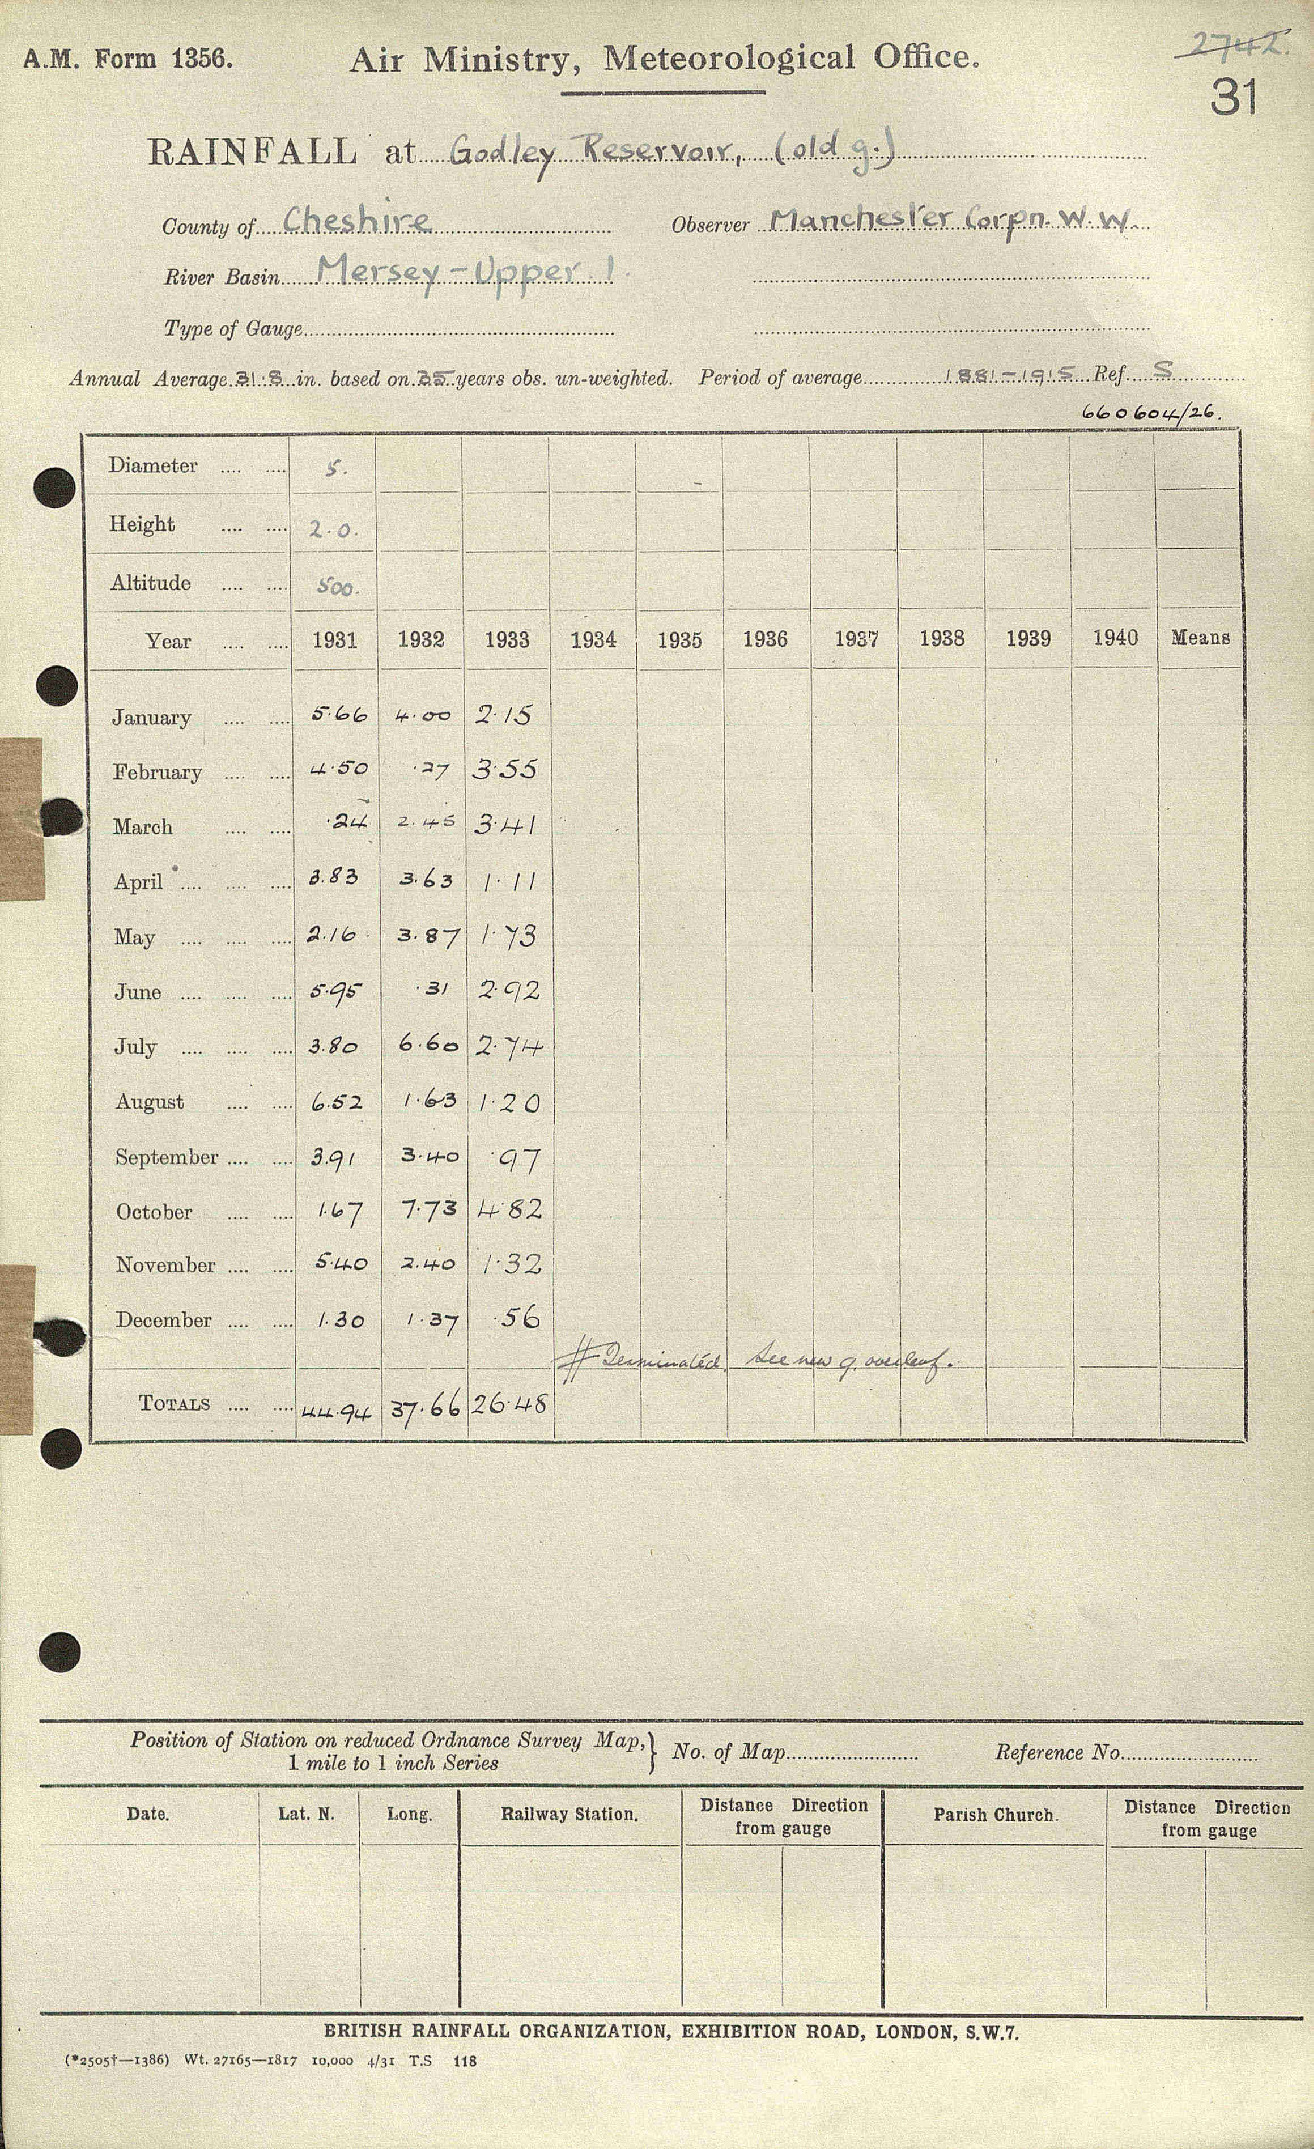 A.M. Form 1356. Air Ministry, Meteorological Office. 2742.
31
RAINFALL at Godley Reservoir, (old g.)
County of Cheshire Observer Manchester Corpn. W.W.
River Basin Mersey - Upper 1.
Type of Gauge
Annual Average 31.8 in. based on 35 years obs. un-weighted. Period of average 1881-1915 Ref. S
660604/26.
Diameter .... .... 5.
Height .... .... 2.0.
Altitude .... .... 500.
Year .... .... 1931 1932 1933 1934 1935 1936 1937 1938 1939 1940 Means
January .... .... 5.66 4.00 2.15
February .... .... 4.50 .27 3.55
March .... .... .24 2.45 3.41
April .... .... .... 3.83 3.63 1.11
May .... .... .... 2.16 3.87 1.73
June .... .... .... 5.95 .31 2.92
July .... .... .... 3.80 6.60 2.74
August .... .... 6.52 1.63 1.20
September .... .... 3.91 3.40 .97
October .... .... 1.67 7.73 4.82
November .... .... 5.40 2.40 1.32
December .... .... 1.30 1.37 .56
# Terminated. See new g. overleaf.
TOTALS .... .... 44.94 37.66 26.48
Position of Station on reduced Ordnance Survey Map, } No. of Map Reference No.
1 mile to 1 inch Series
Date. Lat. N. Long. Railway Station. Distance Direction from gauge Parish Church. Distance Direction from gauge
BRITISH RAINFALL ORGANIZATION, EXHIBITION ROAD, LONDON, S.W.7.
(*2505†—1386) Wt. 27165—1817 10,000 4/31 T.S 118